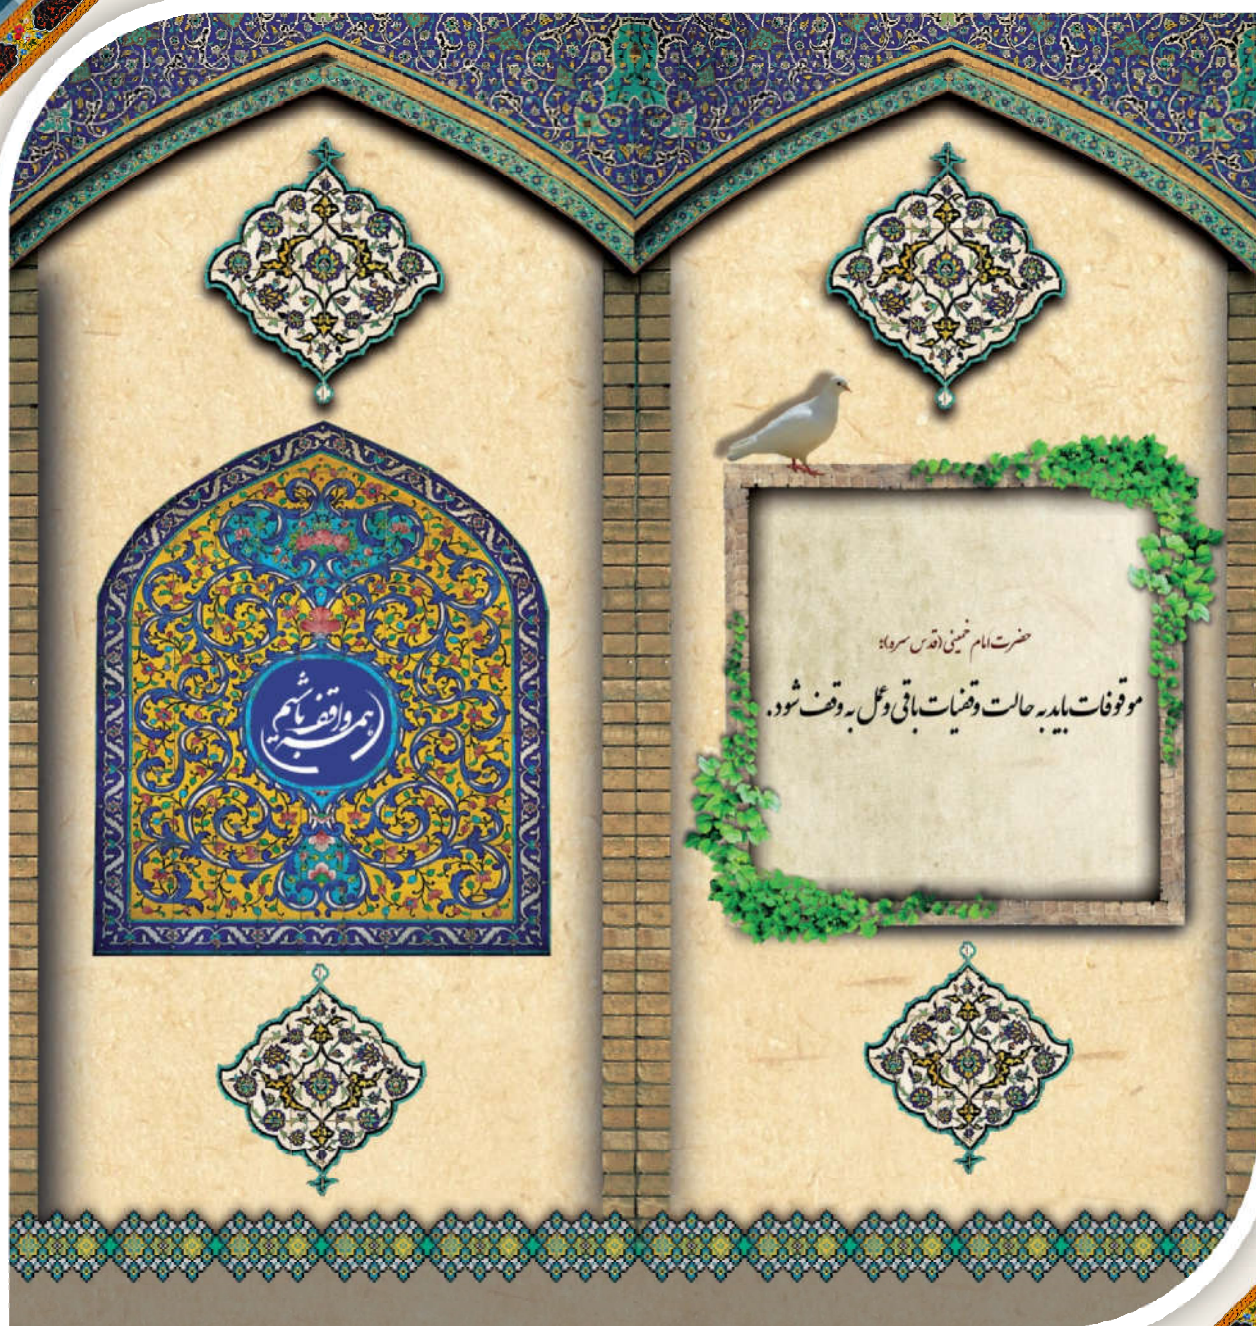 حضرت امام خمینی (قدس سره):
موقوفات باید به حالت وقفیات باقی و عمل به وقف شود.
همه واقف باشیم